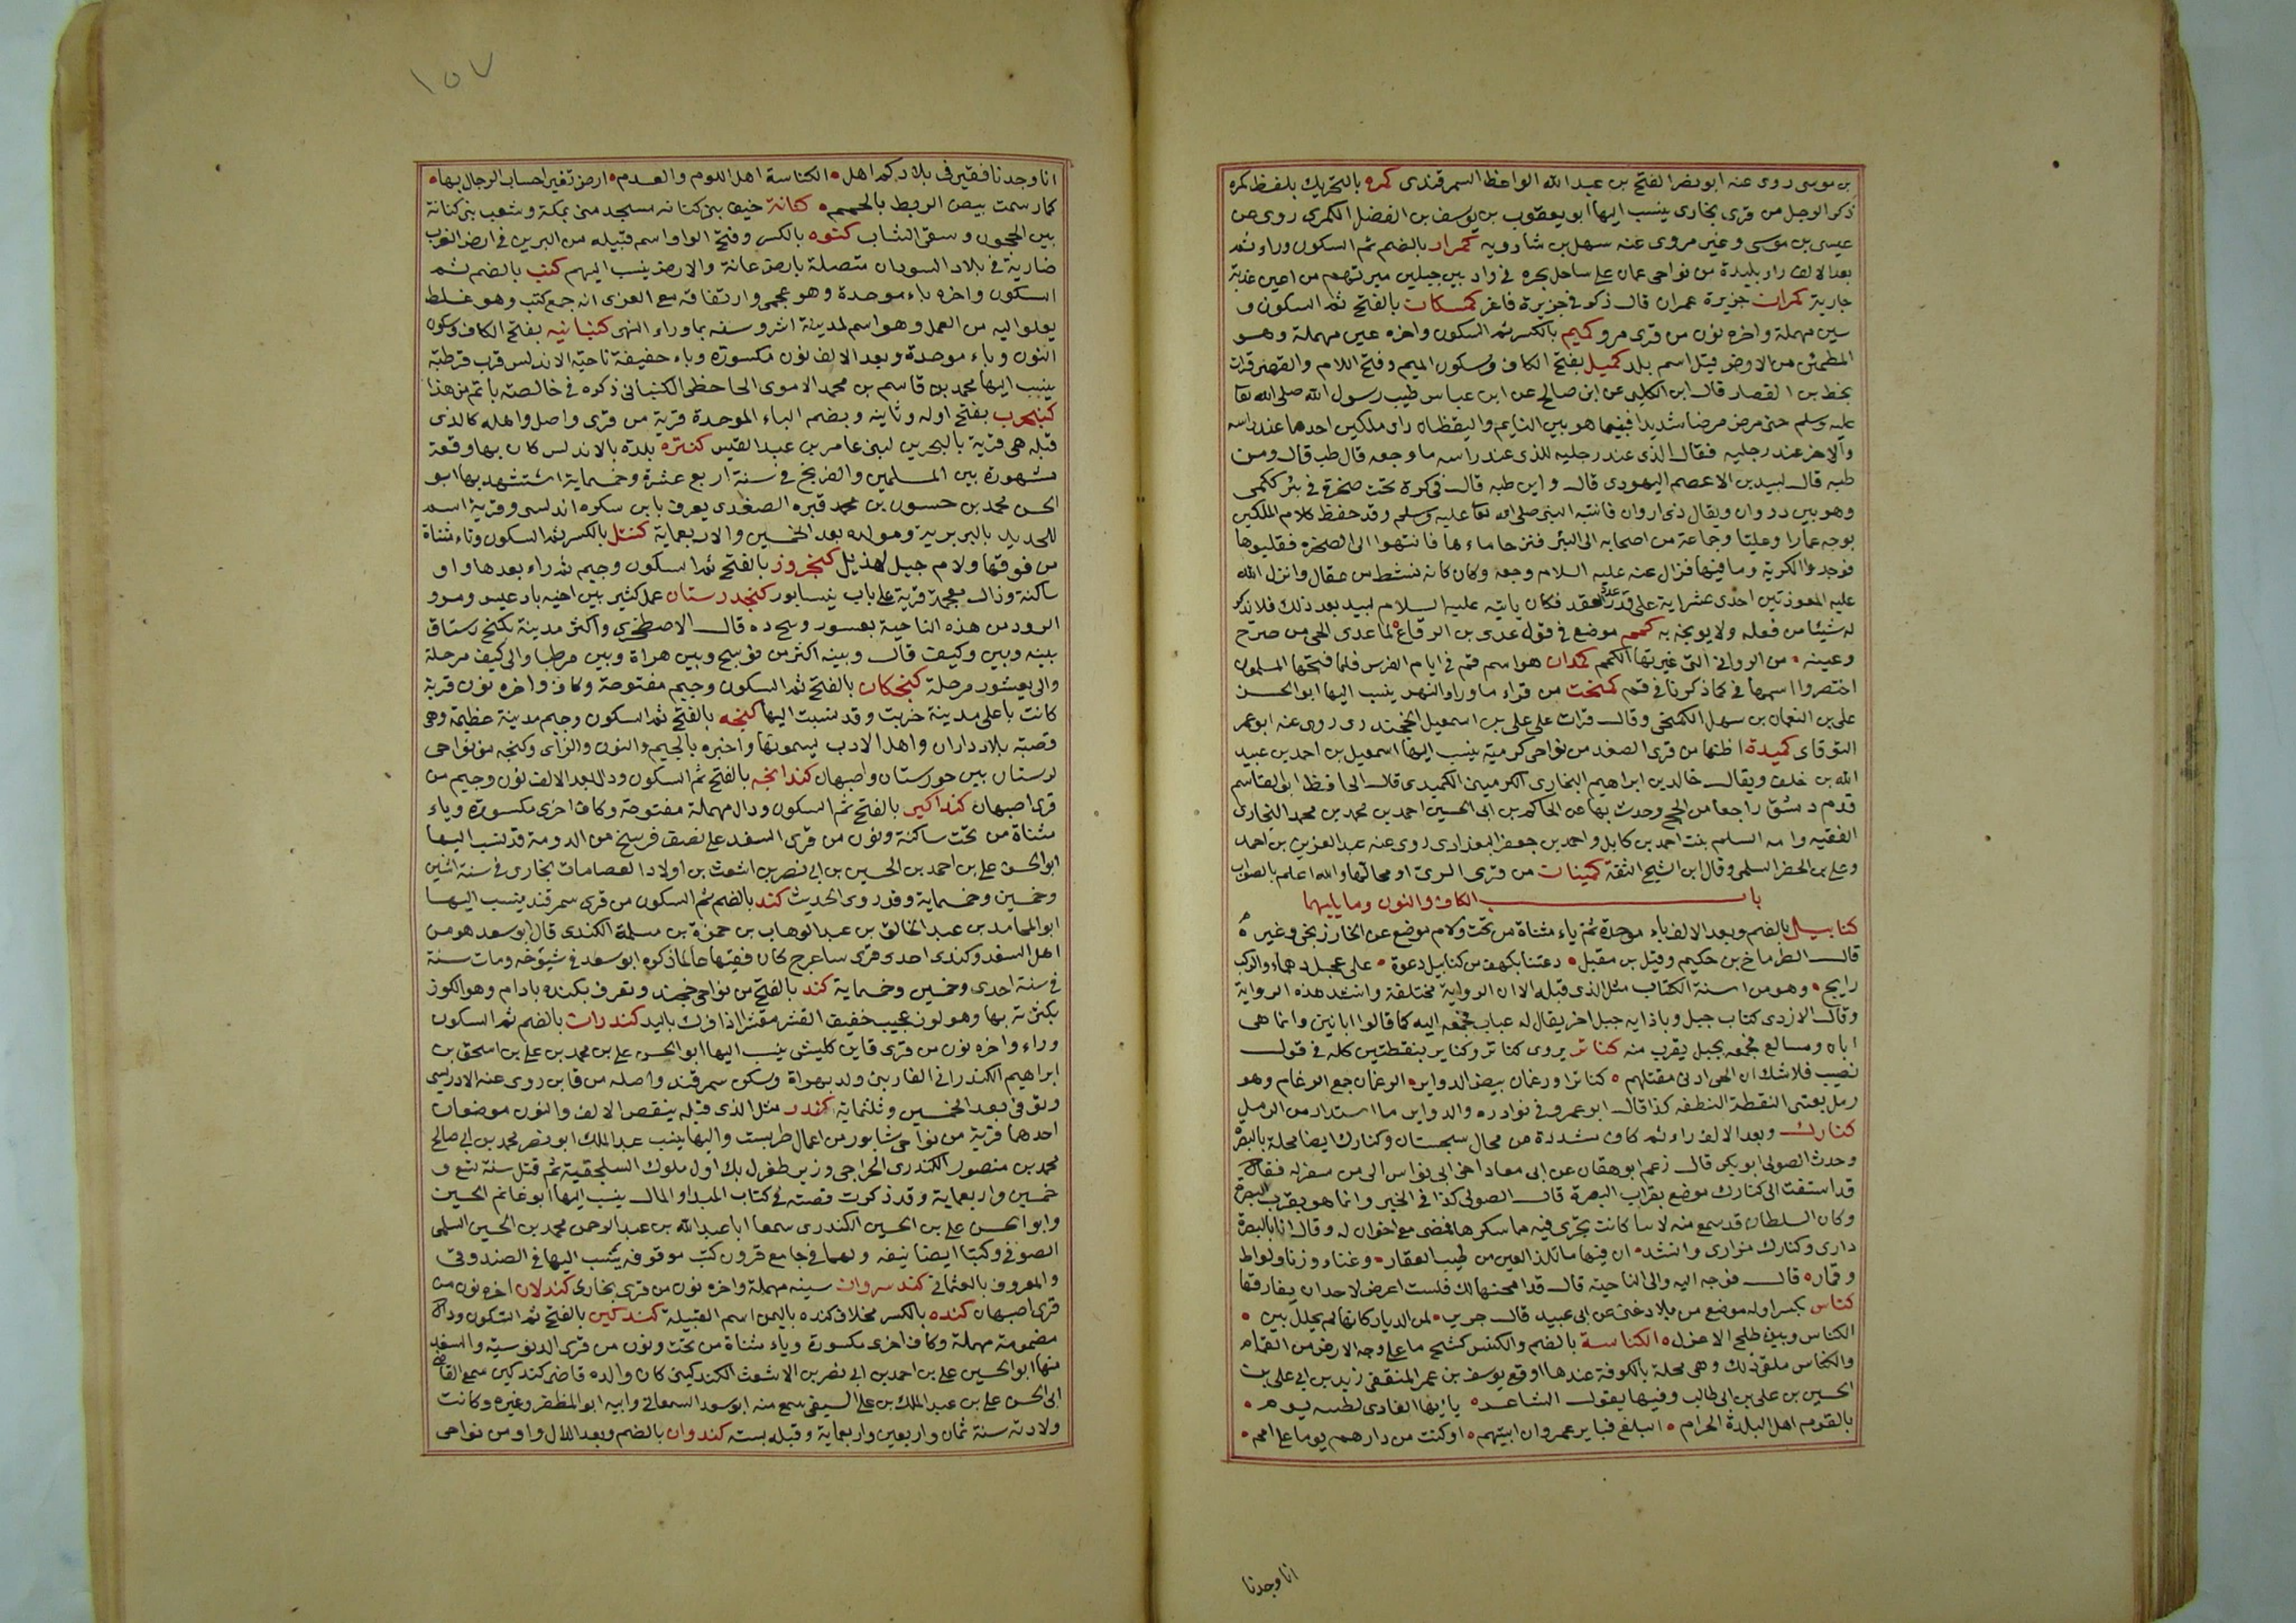 بن موسى روى عنه ابو نضر الفتح بن عبد الله الواعظ السمرقندى كمره بالتحريك بلفظ كمره
ذكر الرجل من قرى بخارى ينسب اليها ابو يعقوب بن يوسف بن الفضل الكمرى روى عن
عيسى بن موسى وغير مروى عنه سهل بن شاذويه كمرار بالضم ثم السكون وراء ثم
بعد الالف راء بليدة من نواحى عمان على ساحل بحره فى واد بين جبلين ميرتهم من اعين عذبة
جارية كمران جزيرة عمران قال ذكر فى جزيرة فاغز كمسكان بالفتح ثم السكون و
سين مهملة واخره نون من قرى مرو كميع بالكسر ثم السكون واخره عين مهملة وهو
المطمئن من الارض قيل اسم بلد كميل بفتح الكاف وسكون الميم وفتح اللام والقصر قرات
بخط بن القصار قال ابن الكلبى عن ابن صالح عن ابن عباس طب رسول الله صلى الله تعا
عليه وسلم حتى مرض مرضا شديدا فبينما هو بين النايم واليقظان راى ملكين احدهما عند راسه
والاخر عند رجليه فقال الذى عند رجليه للذى عند راسه ما وجعه قال طب قال ومن
طبه قال لبيد بن الاعصم اليهودى قال واين طبه قال فى كرة تحت صخرة فى بئر كملى
وهو بين دروان ويقال ذى اروان فانتبه النبى صلى الله تعا عليه وسلم وقد حفظ كلام الملكين
بوجه عمارا وعليا وجماعة من اصحابه الى البئر فنزحا ماءها فانتهوا الى الصخره فقلبوها
فوجدوا الكرية وما فيها فزال عنه عليه السلام وجعه وكان كانه نشط من عقال وانزل الله
عليه المعوذتين احدى عشر اية على قدر عدد العقد فكان ياتيه عليه السلام لبيد بعد ذلك فلا يذكر
له شيئا من فعله ولا يوبخه به كمع موضع فى قول عدى بن الرقاع لما عدى الحى من صرح
وعينه • من الروابى التى غربيها الكمم كمدان هو اسم قم فى ايام الفرس فلما فتحها المسلمون
اختصروا اسمها فى كما ذكرنا فى قم كمنخت من قراء ماوراء النهر ينسب اليها ابو الحسن
على بن النعمان بن سهل الكمنخى وقال قرات على على بن اسمعيل الخجندى روى عنه ابو عمر
النوقاى كميدة اظنها من قرى الصغد من نواحى كرمية ينسب اليها اسمعيل بن احمد بن عبيد
الله بن خلف ويقال خالد بن ابراهيم البخارى الكرمينى الكميدى قال الحافظ ابو القاسم
قدم دمشق راجعا من الحج وحدث بها عن الحاكم بن ابى الحسين احمد بن محمد بن محمد البخارى
الفقيه وامه السلم بنت احمد بن كامل واحمد بن جعفر البغدادى روى عنه عبد العزيز بن احمد
وعلى بن الخضر السلمى وقال ابن الشيخ الثقة كمينات من قرى الرى او محالها والله اعلم بالصواب
باب الكاف والنون وما يليهما
كنابيل بالضم وبعد الالف باء موحدة ثم ياء مثناة من تحت ولام موضع عن الخارزنجى وغيره
قال الطرماخ بن حكيم وقيل بن مقبل • دعتنا بكهف من كنابيل دعوة • على عجل دهماء والركب
رايح • وهو من ابنية الكتاب مثل الذى قبله الا ان الرواية مختلفة وانشد هذه الرواية
وقال الازدى كتاب جبل وباذايه جبل اخر يقال له عباب فجمعه اليه كما قالوا ابانين وانما هى
ابان ومسالع فجمعه بجبل يقرب منه كناثر يروى كناثر وكناير بنقطتين كله فى قول
نصيب فلا شك ان الحى ادنى مقتلهم • كناثرا ورغمان بيض الدواير • الرغمان جمع الرغام وهو
رمل يعتى النقطة النطفه كذا قال ابو عمرو فى نوادره والدواير ما استدار من الرمل
كنارك وبعد الالف راء ثم كاف مشددة من محال سجستان وكنارك ايضا محلة بالبصرة
وحدث الصولى ابو بكر قال زعم ابو هفان عن ابى معاد اخى ابى نواس الى من سفر له فقال
قد استقت الى كنارك موضع بقرب البصرة قال الصولى كذا فى الخبر وانما هو بقرب البصرة
وكان السلطان قد سمع منه لاسا كانت تجرى فيه مما سكرها فمضى مع اخوان له وقال انا بالبصرة
دارى وكنارك مزارى وانشد • ان فيها ما تلذ العين من طيب العقار • وغناء وزنا ولواط
وقمار • قال فوجه اليه والى الناحية قال قد امحنها لك فلست اعرض لاحد ان يفارقها
كناس بكسر اوله موضع من بلاد غنى عن ابى عبيد قال جرير • لمن الديار كانها لم يحلل بين •
الكناس وبين طلح الاعزل • الكناسة بالضم والكنس كشح ما على وجه الارض من القمام
والكناس ملقى ذلك وهى محلة بالكوفة عندها اوقع يوسف بن عمر المنقفى زيد بن ابى على بن
الحسين بن على بن ابى طالب وفيها يقول الشاعر • يا ايها الغادى لطيبه يوم •
بالقوم اهل البلدة الحرام • ابلغ قبايل عمرو ان اتيتهم • او كنت من دارهم يوما على امم •
انا وجدنا
١٥٧
انا وجدنا فقيرى بلادكم اهل • الكناسة اهل اللوم والعدم • ارض تغير احساب الرجال بها •
كما رسمت بيض الريط بالحمم • كنانة خيف بنى كنانه مسجد منى بمكة وشعب بنى كنانة
بين الحجون وسقى الشاب كنوه بالكسر وفتح الواو اسم قبيله من البربر فى ارض الغرب
ضاربة فى بلاد السودان متصلة بارض غانة والارض ينسب اليهم كنب بالضم ثم
السكون واخره باء موحدة وهو عجمى وارتفاقه مع العربى انه جمع كنب وهو غلط
يعلو اليه من العمل وهو اسم لمدينة اشروسنه بماوراء النهر كنبانيه بفتح الكاف وسكون
النون وباء موحدة وبعد الالف نون مكسورة وباء خفيفة ناحية الاندلس قرب قرطبة
ينسب اليها محمد بن قاسم بن محمد الاموى الحاحظى الكنبانى ذكره فى خالصته باتم من هذا
كنبحرب بفتح اوله وثانيه وبضم الباء الموحدة قرية من قرى واصل واهله كالذى
قبله هى قرية بالبحرين لبنى عامر بن عبد القيس كنتره بلدة بالاندلس كان بها وقعة
مشهورة بين المسلمين والفرنج فى سنة اربع عشرة وخمسماية استشهد بها ابو
الحسن محمد بن حسون بن محمد قيره الصغدى يعرف بابن سكره اندلسى وقرية اسم
للحديد بالبربرية ومولده بعد الخمسين والاربعماية كنتل بالكسر ثم السكون وتاء مثناة
من فوقها ولام جبل لهذيل كنجروز بالفتح ثم السكون وجيم ثم راء بعدها واو
ساكنة وذال معجمة قرية على باب نيسابور كنجدرستان عمل كثير بين ناحية بادغيس ومرو
الرود من هذه الناحية بغشور وبنج ده قال الاصطخرى واكثر مدينة بكنج رستاق
بينه وبين وكيف قال وبينه اكثر من فوسنج وبين هراة وبين مرطها والى كيف مرحلة
والى بغشور مرحلة كنجكان بالفتح ثم السكون وجيم مفتوحة وكاف واخره نون قرية
كانت باعلى مدينة خربت وقد نسبت اليها كنجه بالفتح ثم السكون وجيم مدينة عظيمة وهى
قصبة بلاد داران واهل الادب يسمونها واخبره بالجيم والنون والزاى وكنجه من نواحى
لرستان بين خورستان واصبهان كندانجه بالفتح ثم السكون ودال بعد الالف نون وجيم من
قرى اصبهان كنداكين بالفتح ثم السكون ودال مهملة مفتوحة وكاف اخرى مكسوره وياء
مثناة من تحت ساكنة ونون من قرى السغد على نصف فرسخ من الدومة قد نسب اليها
ابو الحسن على بن احمد بن الحسين بن ابى نصر بن اشعث بن اولاد العصامات بخارى فى سنة اثنين
وخمسين وخمسماية وقد روى الحديث كند بالضم ثم السكون من قرى سمرقند ينسب اليها
ابو المحامد بن عبد الخالق بن عبد الوهاب بن حمزة بن مسلمة الكندى قال ابو سعد هو من
اهل السغد وكندى احدى قرى ساغرج كان فقيها عالما ذكره ابو سعد فى شيوخه ومات سنة
فى سنة احدى وخمسين وخمسماية كند بالفتح من نواحى خجند وتعرف بكنده بادام وهو الكوز
بكثرته بها وهو لون عجيب خفيف القشر مقشر اذا فرك باليد كندران بالضم ثم السكون
وراء واخره نون من قرى قاين كليش ينسب اليها ابو الحسن على بن محمد بن على بن اسحق بن
ابراهيم الكندرانى الفارينى ولد بهراة وسكن سمرقند واصله من قاين روى عنه الادريسى
وتوفى بعد الخمسين وثلثماية كندر مثل الذى قبله بنقص الالف والنون موضعان
احدهما قرية من نواحى نيشابور من اعمال طريست واليها ينسب عبد الملك ابو نصر محمد بن ابى صالح
محمد بن منصور الكندرى الجراحى وزير طغرل بك اول ملوك السلجقية ثم قتل سنة تسع و
خمسين واربعماية وقد ذكرت قصته فى كتاب المبداء والمال ينسب اليها ابو غانم الحسين
وابو الحسن على بن الحسين الكندرى سمعا ابا عبد الله بن عبد الرحمن محمد بن الحسين السلمى
الصوفى وكتبا ايضا نيفه ولهما فى جامع قزوين كتب موقوفه ينسب اليها فى الصندوق
والمعروف بالعثمانى كندسروان سينه مهملة واخره نون من قرى بخارى كندلان اخره نون من
قرى اصبهان كنده بالكسر مخلاف كنده باليمن اسم القبيلة كندكين بالفتح ثم السكون ودال
مضمومة مهملة وكاف اخرى مكسورة وياء مثناة من تحت ونون من قرى الدبوسية والسغد
منها ابو الحسين على بن احمد بن ابى نصر بن الاشعث الكندكينى كان والده قاضى كندكين سمع القاضى
ابى الحسن على بن عبد الملك بن على السيفى سمع منه ابو سعد السمعانى وابيه ابو المظفر وغيره وكانت
ولادته سنة ثمان واربعين واربعماية وقبله بسته كندوان بالضم وبعد الدال واو من نواحى